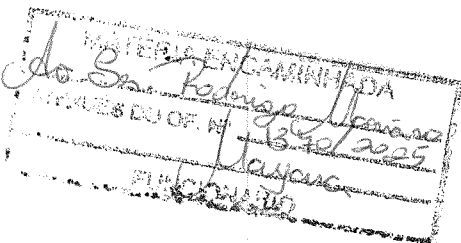 MATÉRIA ENCAMINHADA
Ao Sr. Rodrigo
ATRAVÉS DO OF. Nº 1370/2025
Mayara
FUNCIONÁRIO